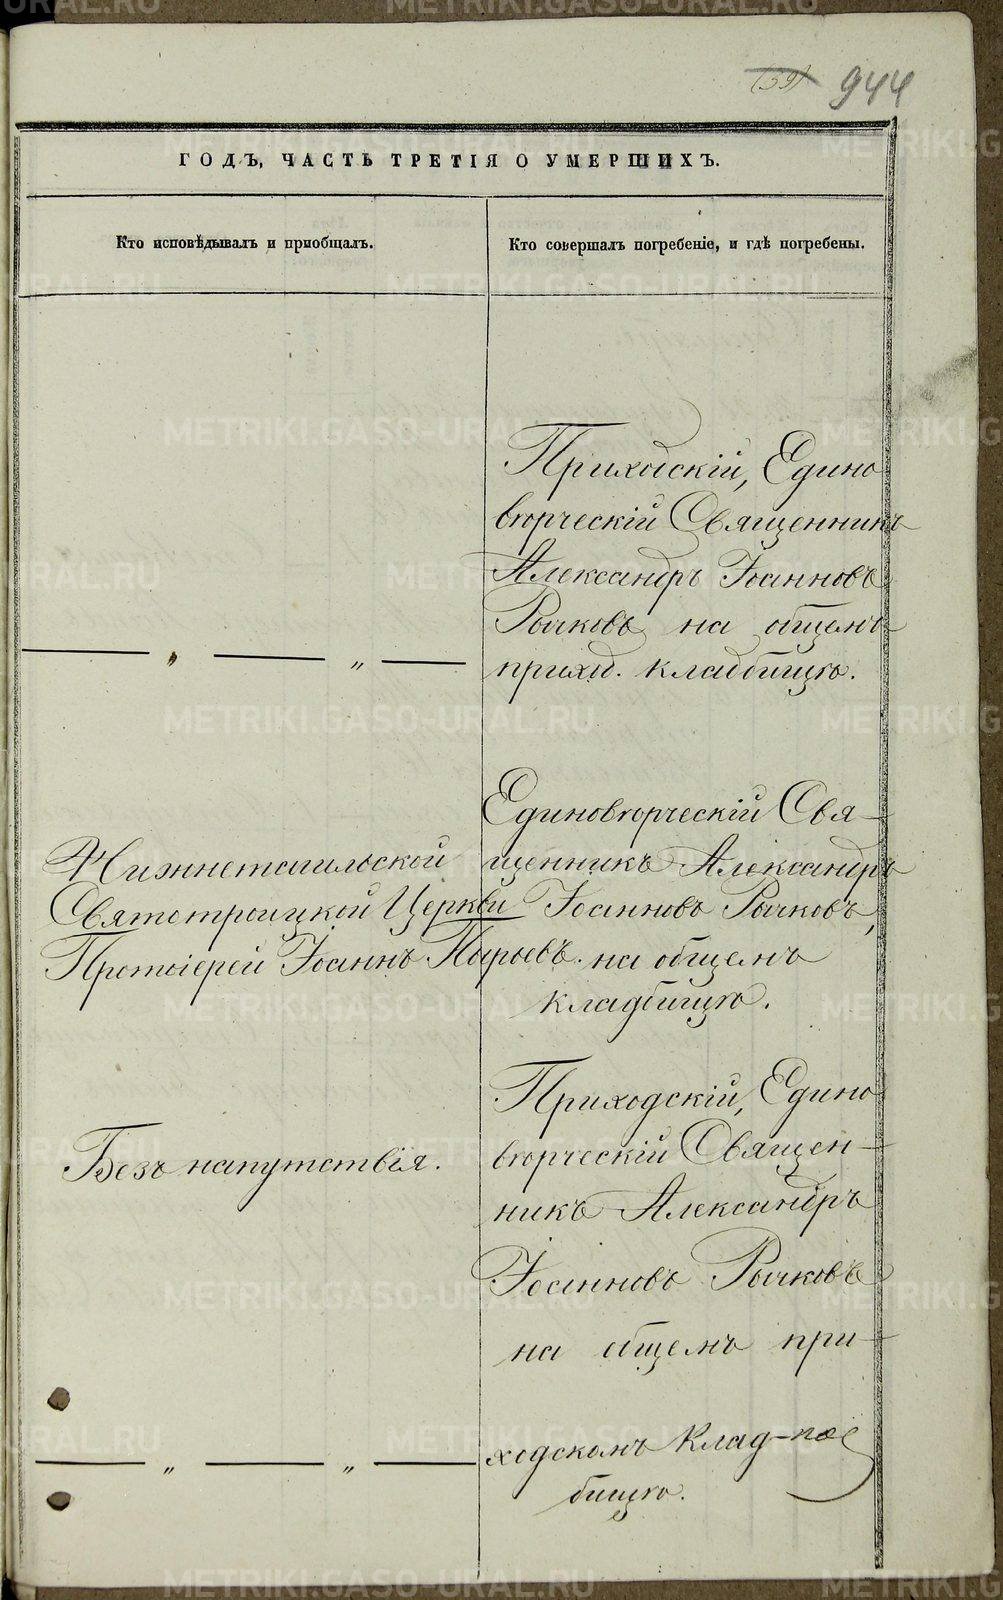 (59) 944
ГОДЪ, ЧАСТЬ ТРЕТІЯ О УМЕРШИХЪ.
Кто исповѣдывалъ и пріобщалъ.
Кто совершалъ погребеніе, и гдѣ погребены.
Приходскій, Едино
вѣрческій Священникъ
Александръ Іоанновъ
Рычковъ на общемъ
приход. кладбищѣ.
— „ — „ —
Нижнетагильской
Святотроицкой Церкви
Протоіерей Іоаннъ Пырьевъ.
Единовѣрческій Свя-
щенникъ Александръ
Іоанновъ Рычковъ,
на общемъ
кладбищѣ.
Безъ напутствія.
Приходскій, Едино
вѣрческій Священ-
никъ Александръ
Іоанновъ Рычковъ
на общемъ при-
ходскомъ Клад-
бищѣ.
— „ — „ —
METRIKI.GASO-URAL.RU